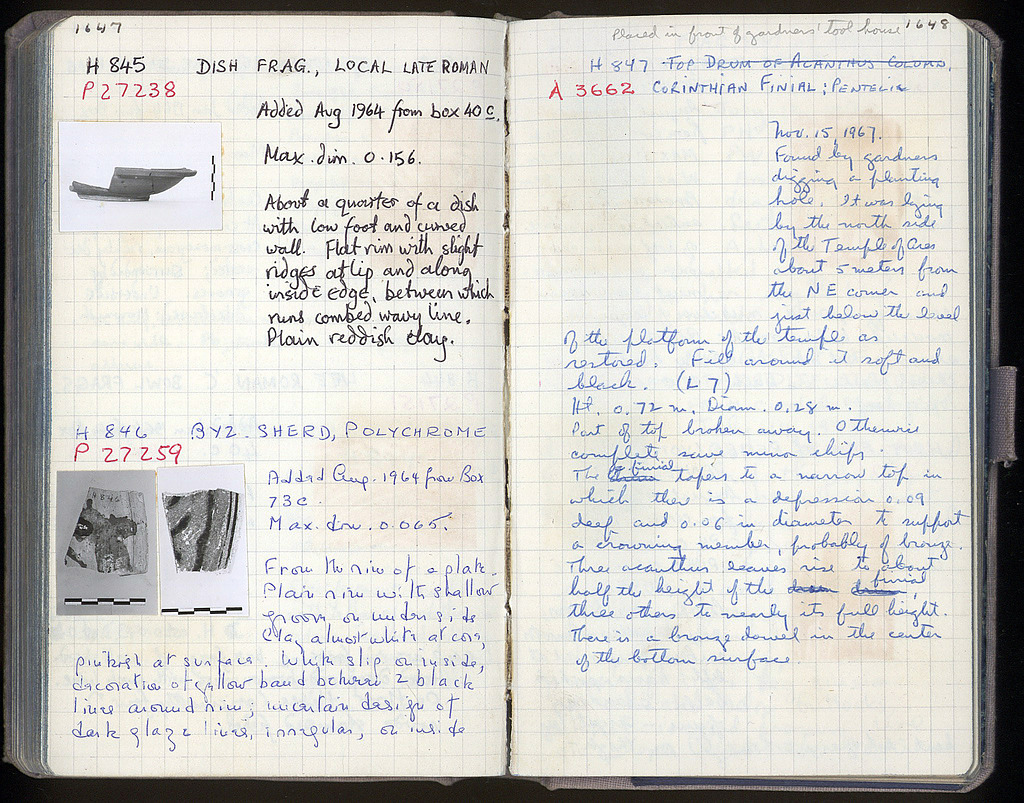 1647
H 845 DISH FRAG., LOCAL LATE ROMAN
P 27238
Added Aug 1964 from box 40 c.
Max. dim. 0.156.
About a quarter of a dish
with low foot and curved
wall. Flat rim with slight
ridges at lip and along
inside edge, between which
runs combed wavy line.
Plain reddish clay.
H 846 BYZ. SHERD, POLYCHROME
P 27259
H 846
Added Aug. 1964 from Box
73C.
Max. dim. 0.065.
From the rim of a plate.
Plain rim with shallow
groove on under side
Clay almost white at core,
pinkish at surface. White slip on inside,
decoration of yellow band between 2 black
lines around rim; uncertain design of
dark glaze lines, irregular, on inside
1648
Placed in front of gardners' tool house
H 847 TOP DRUM OF ACANTHUS COLUMN.
A 3662 CORINTHIAN FINIAL; PENTELIC
Nov. 15, 1967.
Found by gardners
digging a planting
hole. It was lying
by the north side
of the Temple of Ares
about 5 meters from
the NE corner and
just below the level
of the platform of the temple as
restored. Fill around it soft and
black. (L 7)
Ht. 0.72 m. Diam. 0.28 m.
Part of top broken away. Otherwise
complete save minor chips.
The finial tapers to a narrow top in
which there is a depression 0.09
deep and 0.06 in diameter to support
a crowning member, probably of bronze.
Three acanthus leaves rise to about
half the height of the drum finial,
three others to nearly its full height.
There is a bronze dowel in the center
of the bottom surface.